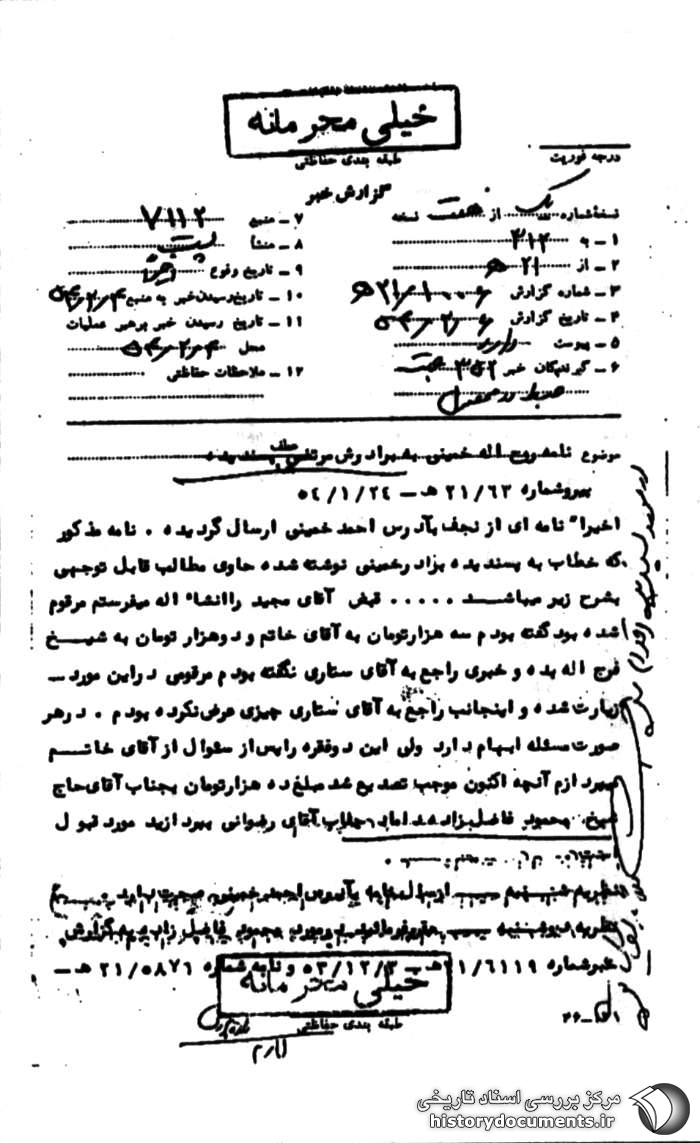 خیلی محرمانه
طبقه بندی حفاظتی
درجه فوریت
گزارش خبر
نسخه شماره یک از هفت نسخه
۱ – به ۳۱۲
۲ – از ۲۱ ه
۳ – شماره گزارش
۴ – تاریخ گزارش ۵۴/۲/۶
۵ – پیوست دارد
۶ – گیرندگان خبر
۷ – منبع ۷۱۱۲
۸ – منشأ پست
۹ – تاریخ وقوع اخیراً
۱۰ – تاریخ رسیدن خبر به منبع ۵۴/۲/۴
۱۱ – تاریخ رسیدن خبر برهبر عملیات
محل ۵۴/۲/۴
۱۲ – ملاحظات حفاظتی
موضوع نامه روح اله خمینی به برادرش مرتضی پسندیده
پیروشماره ۲۱/۶۳ هـ – ۵۴/۱/۲۴
اخیرا" نامه ای از نجف بآدرس احمد خمینی ارسال گردیده . نامه مذکور
که خطاب به پسندیده برادرخمینی نوشته شده حاوی مطالب قابل توجهی
بشرح زیر میباشد ..... قبض آقای مجید راانشاء اله میفرستم مرقوم
شده بود گفته بودم سه هزارتومان به آقای خاتم و دوهزار تومان به شیخ
فرج اله بده و خبری راجع به آقای ستاری نگفته بودم مرقومی دراین مورد –
زیارت شده و اینجانب راجع به آقای ستاری چیزی عرض نکرده بودم . درهر
صورت مسئله ابهام دارد ولی این دوفقره راپس از سئوال از آقای خاتم
بپردازم آنچه اکنون موجب تصدیع شد مبلغ ده هزارتومان بجناب آقای حاج
شیخ محمود فاضل زاده داماد جناب آقای رضوانی بپردازید مورد قبول
نظریه شنبه ارسال نامه بآدرس احمد خمینی صحت دارد
نظریه دوشنبه محمود فاضل زاده به گزارش
خبرشماره ۲۱/۶۱۱۹ هـ – ۵۳/۱۲/۳ و نامه شماره ۲۱/۵۸۷۶ هـ –
خیلی محرمانه
طبقه بندی حفاظتی
مرکز بررسی اسناد تاریخی
historydocuments.ir